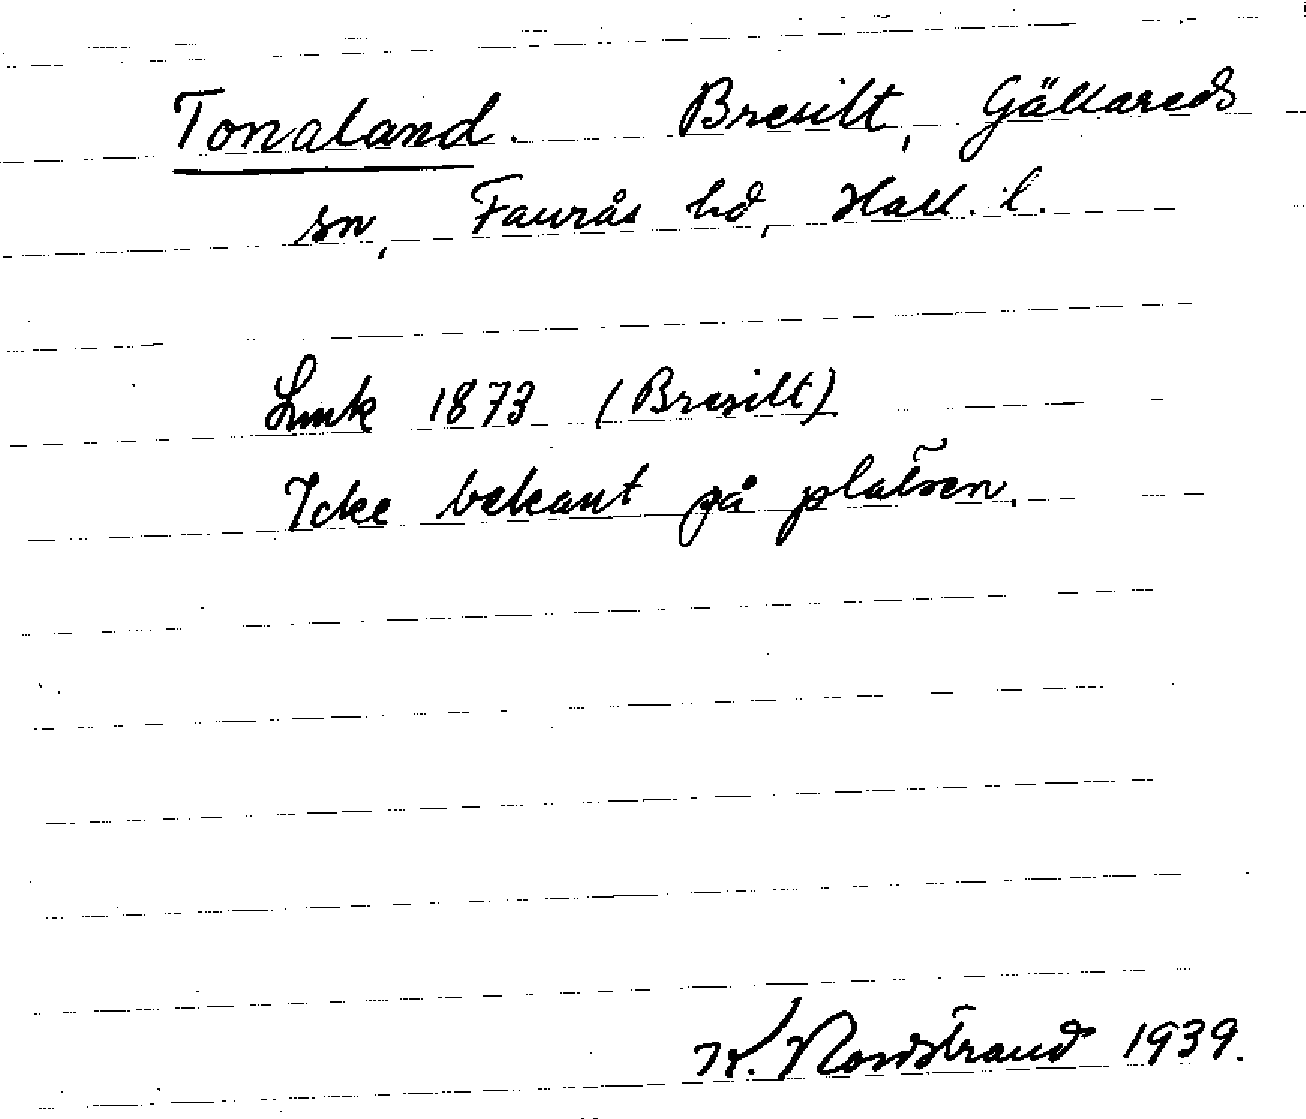 Tonaland. Bresilt, Gällareds
sn, Faurås hd, Hall. l.
Lmk 1873 (Bresilt)
Icke bekant på platsen.
K. Nordstrand 1939.